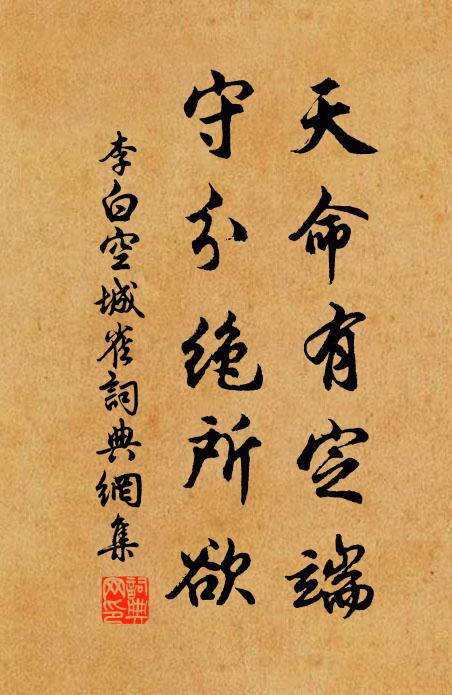 天命有定端
守分絶所欲
李白空城雀詞典網集
詞典网印